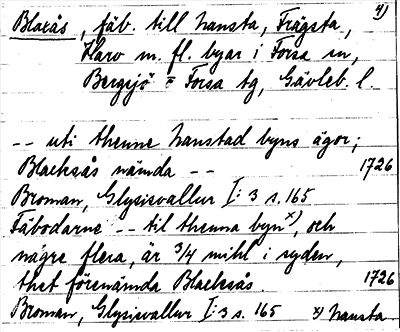 4)
Blaxås, fäb. till Nansta, Frägsta,
Harv m. fl. byar i Forsa sn,
Bergsjö o Forsa tg, Gävleb. l.
-- uti thenne Nanstad byns ägor;
Blacksås nämda -- 1726
Broman, Glysisvallur I:3 s. 165
Fäbodarne -- til thenna byn x), och
någre flera, är 3/4 mihl i syden,
thet förenämda Blacksås. 1726
Broman, Glysisvallur I:3 s. 165 x) Nansta.